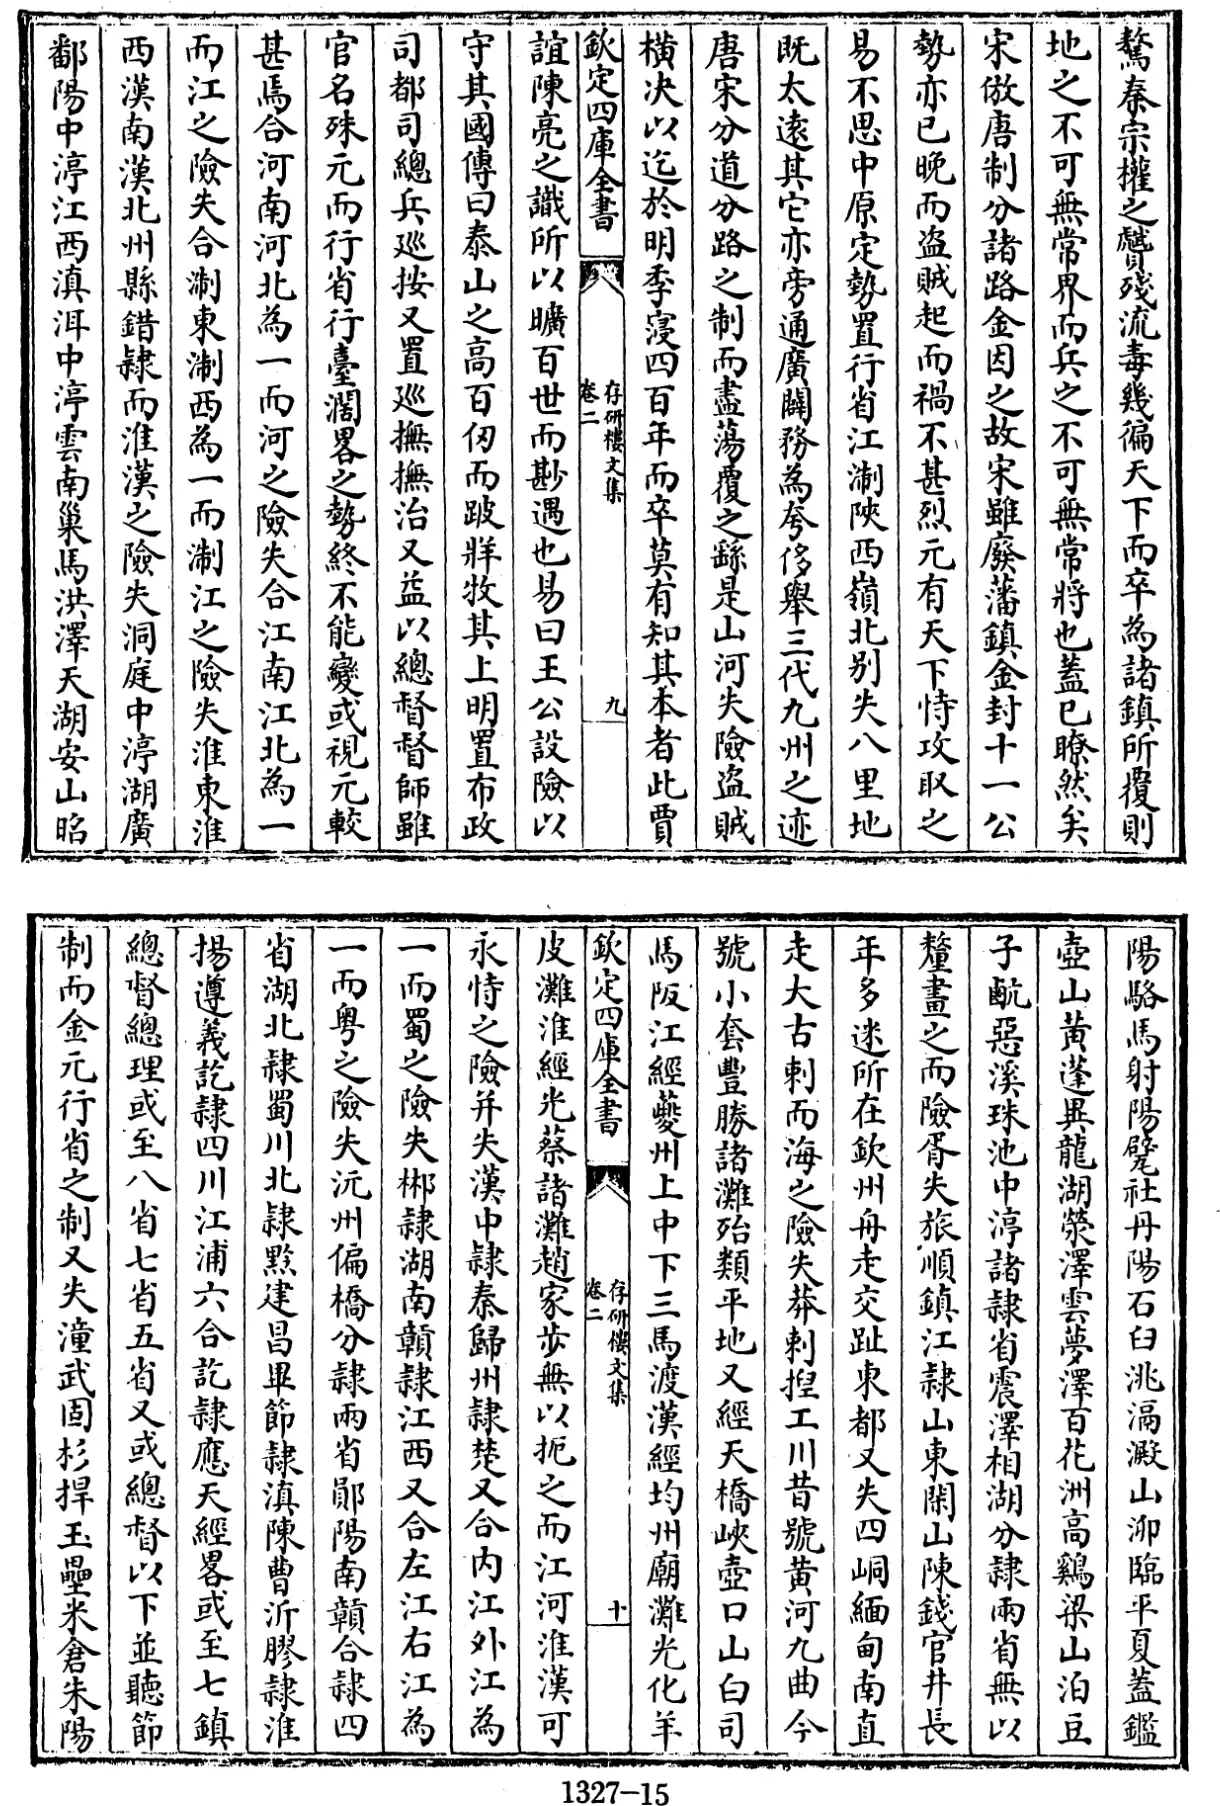 驁秦宗權之孼殘流毒幾徧天下而卒為諸鎮所覆則
地之不可無常界而兵之不可無常將也蓋已瞭然矣
宋倣唐制分諸路金因之故宋雖廢藩鎮金封十一公
勢亦已晚而盜賊起而禍不甚烈元有天下恃攻取之
易不思中原定勢置行省江淛陜西嶺北别失八里地
既太遠其它亦旁通廣闢務為夸侈舉三代九州之迹
唐宋分道分路之制而盡蕩覆之繇是山河失險盜賊
橫决以迄於明季寖四百年而卒莫有知其本者此賈
欽定四庫全書
存研樓文集
卷二
九
誼陳亮之識所以曠百世而尠遇也易曰王公設險以
守其國傳曰泰山之高百仞而跛牂牧其上明置布政
司都司總兵巡按又置巡撫撫治又益以總督督師雖
官名殊元而行省行臺濶畧之勢終不能變或視元較
甚焉合河南河北為一而河之險失合江南江北為一
而江之險失合淛東淛西為一而淛江之險失淮東淮
西漢南漢北州縣錯隸而淮漢之險失洞庭中渟湖廣
鄱陽中渟江西滇洱中渟雲南巢馬洪澤天湖安山昭
陽駱馬射陽甓社丹陽石臼洮滆澱山泖臨平夏蓋鑑
壺山黄蓬異龍湖滎澤雲夢澤百花洲高鷄梁山泊豆
子䴚惡溪珠池中渟諸隸省震澤相湖分隸兩省無以
釐畫之而險胥失旅順鎮江隸山東閑山陳錢官井長
年多迷所在欽州舟走交趾東都又失四峒緬甸南直
走大古剌而海之險失莽剌揑工川昔號黄河九曲今
號小套豐勝諸灘殆類平地又經天橋峽壺口山白司
馬阪江經夔州上中下三馬渡漢經均州廟灘光化羊
欽定四庫全書
存研樓文集
卷二
十
皮灘淮經光蔡諸灘趙家步無以扼之而江河淮漢可
永恃之險并失漢中隸秦歸州隸楚又合内江外江為
一而蜀之險失郴隸湖南贛隸江西又合左江右江為
一而粤之險失沅州偏橋分隸兩省鄖陽南贛合隸四
省湖北隸蜀川北隸黔建昌畢節隸滇陳曹沂膠隸淮
揚遵義訖隸四川江浦六合訖隸應天經畧或至七鎮
總督總理或至八省七省五省又或總督以下並聽節
制而金元行省之制又失潼武固杉捍玉壘米倉朱陽
1327-15